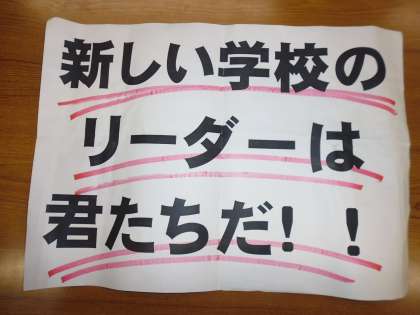 新しい学校の
リーダーは
君たちだ！！